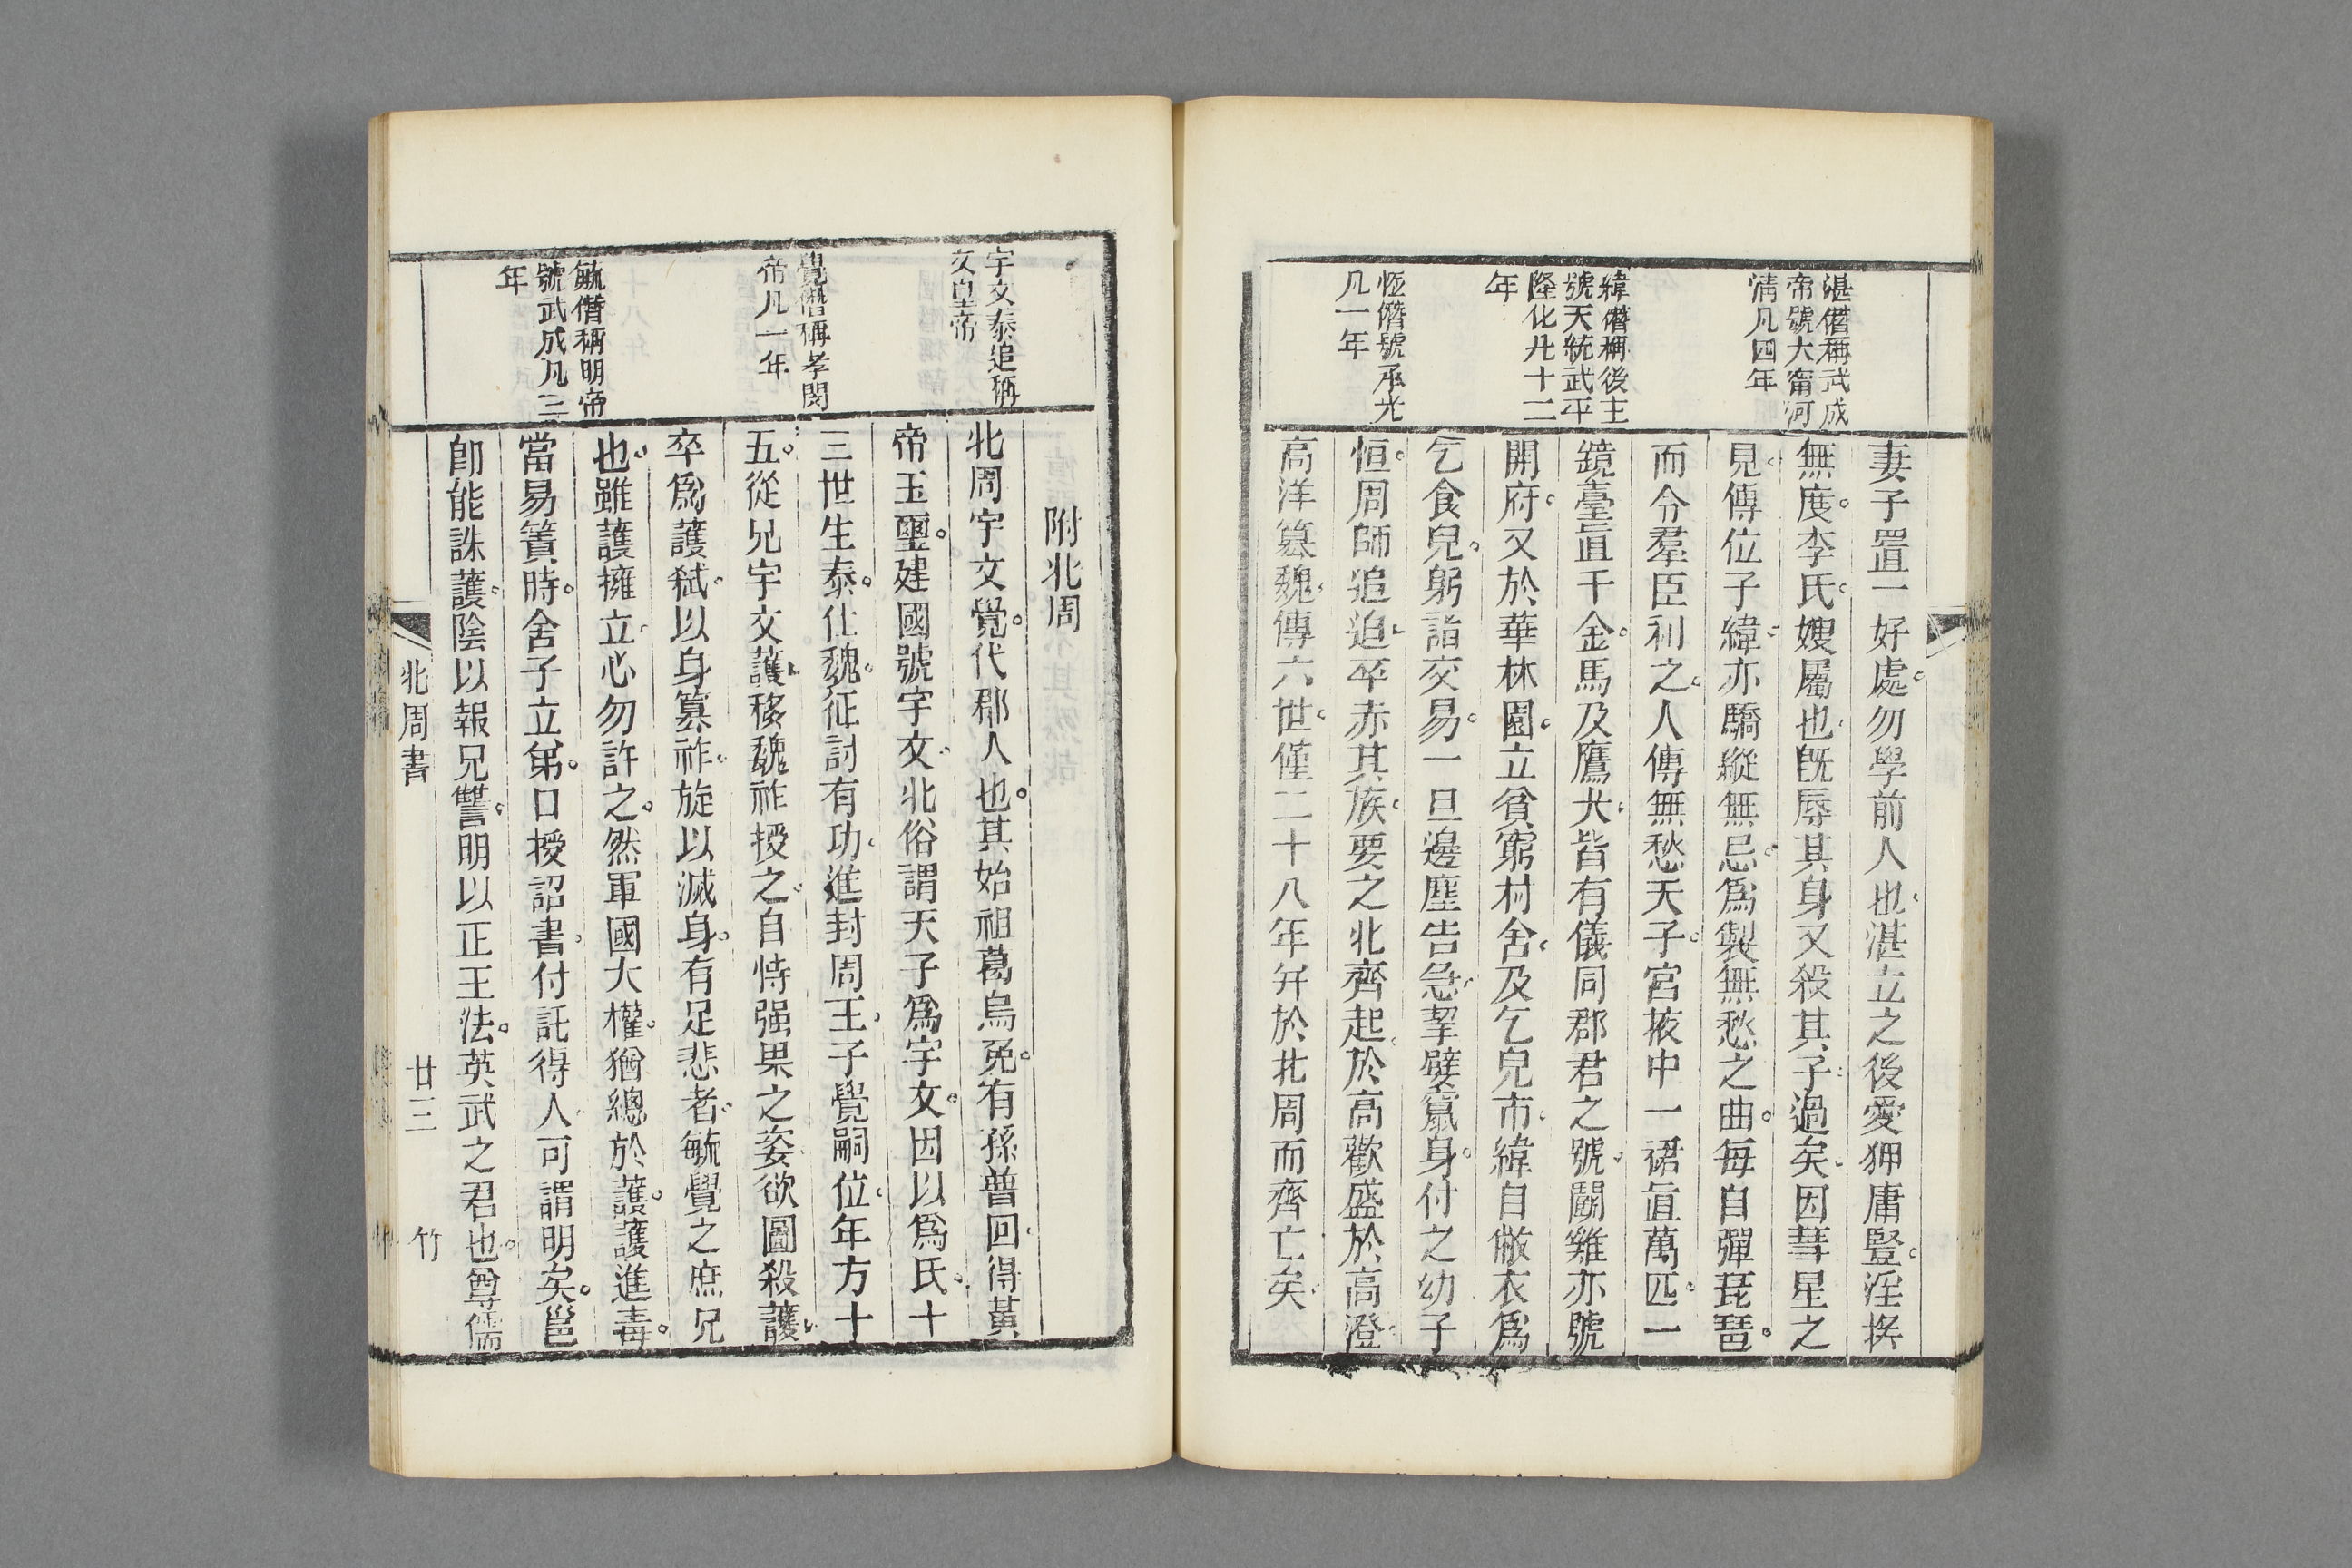 湛僭稱武成
帝號大甯河
清凡四年
緯僭稱後主
號天統武平
隆化凡十二
年
恒僭號承光
凡一年
妻子置一好處。勿學前人也。湛立之後愛狎庸豎。淫䙝
無度。李氏。嫂屬也。旣辱其身又殺其子。過矣。因彗星之
見。傳位子緯。亦驕縱無忌。爲製無愁之曲。每自彈琵琶。
而令羣臣和之。人傳無愁天子。宮掖中一裙直萬匹。一
鏡臺直千金。馬及鷹犬。皆有儀同郡君之號。鬭雞亦號
開府。又於華林園。立貧窮村舍。及乞兒市。緯自敝衣爲
乞食兒。躬詣交易。一旦邊塵告急。挈孼竄身。付之幼子
恒。周師追迫。卒赤其族。要之北齊起。於高歡盛於高澄。
高洋篡魏。傳六世。僅二十八年幷於北周而齊亡矣。
宇文泰追稱
文皇帝
覺僭稱孝閔
帝凡一年
毓僭稱明帝
號武成凡三
年
附北周
北周宇文覺。代郡人也。其始祖葛烏兎。有孫普回。得黃
帝玉璽。建國號宇文。北俗謂天子爲宇文。因以爲氏。十
三世生泰。仕魏。征討有功。進封周王。子覺嗣位。年方十
五。從兄宇文護。移魏祚授之。自恃强果之姿。欲圖殺護。
卒爲護弑。以身篡祚。旋以滅身。有足悲者。毓覺之庶兄
也。雖護擁立。心勿許之。然軍國大權。猶總於護。護進毒。
當易簀時。舍子立弟。口授詔書。付託得人。可謂明矣。邕
卽能誅護。陰以報兄讐。明以正王法。英武之君也。尊儒
北周書
廿三
竹